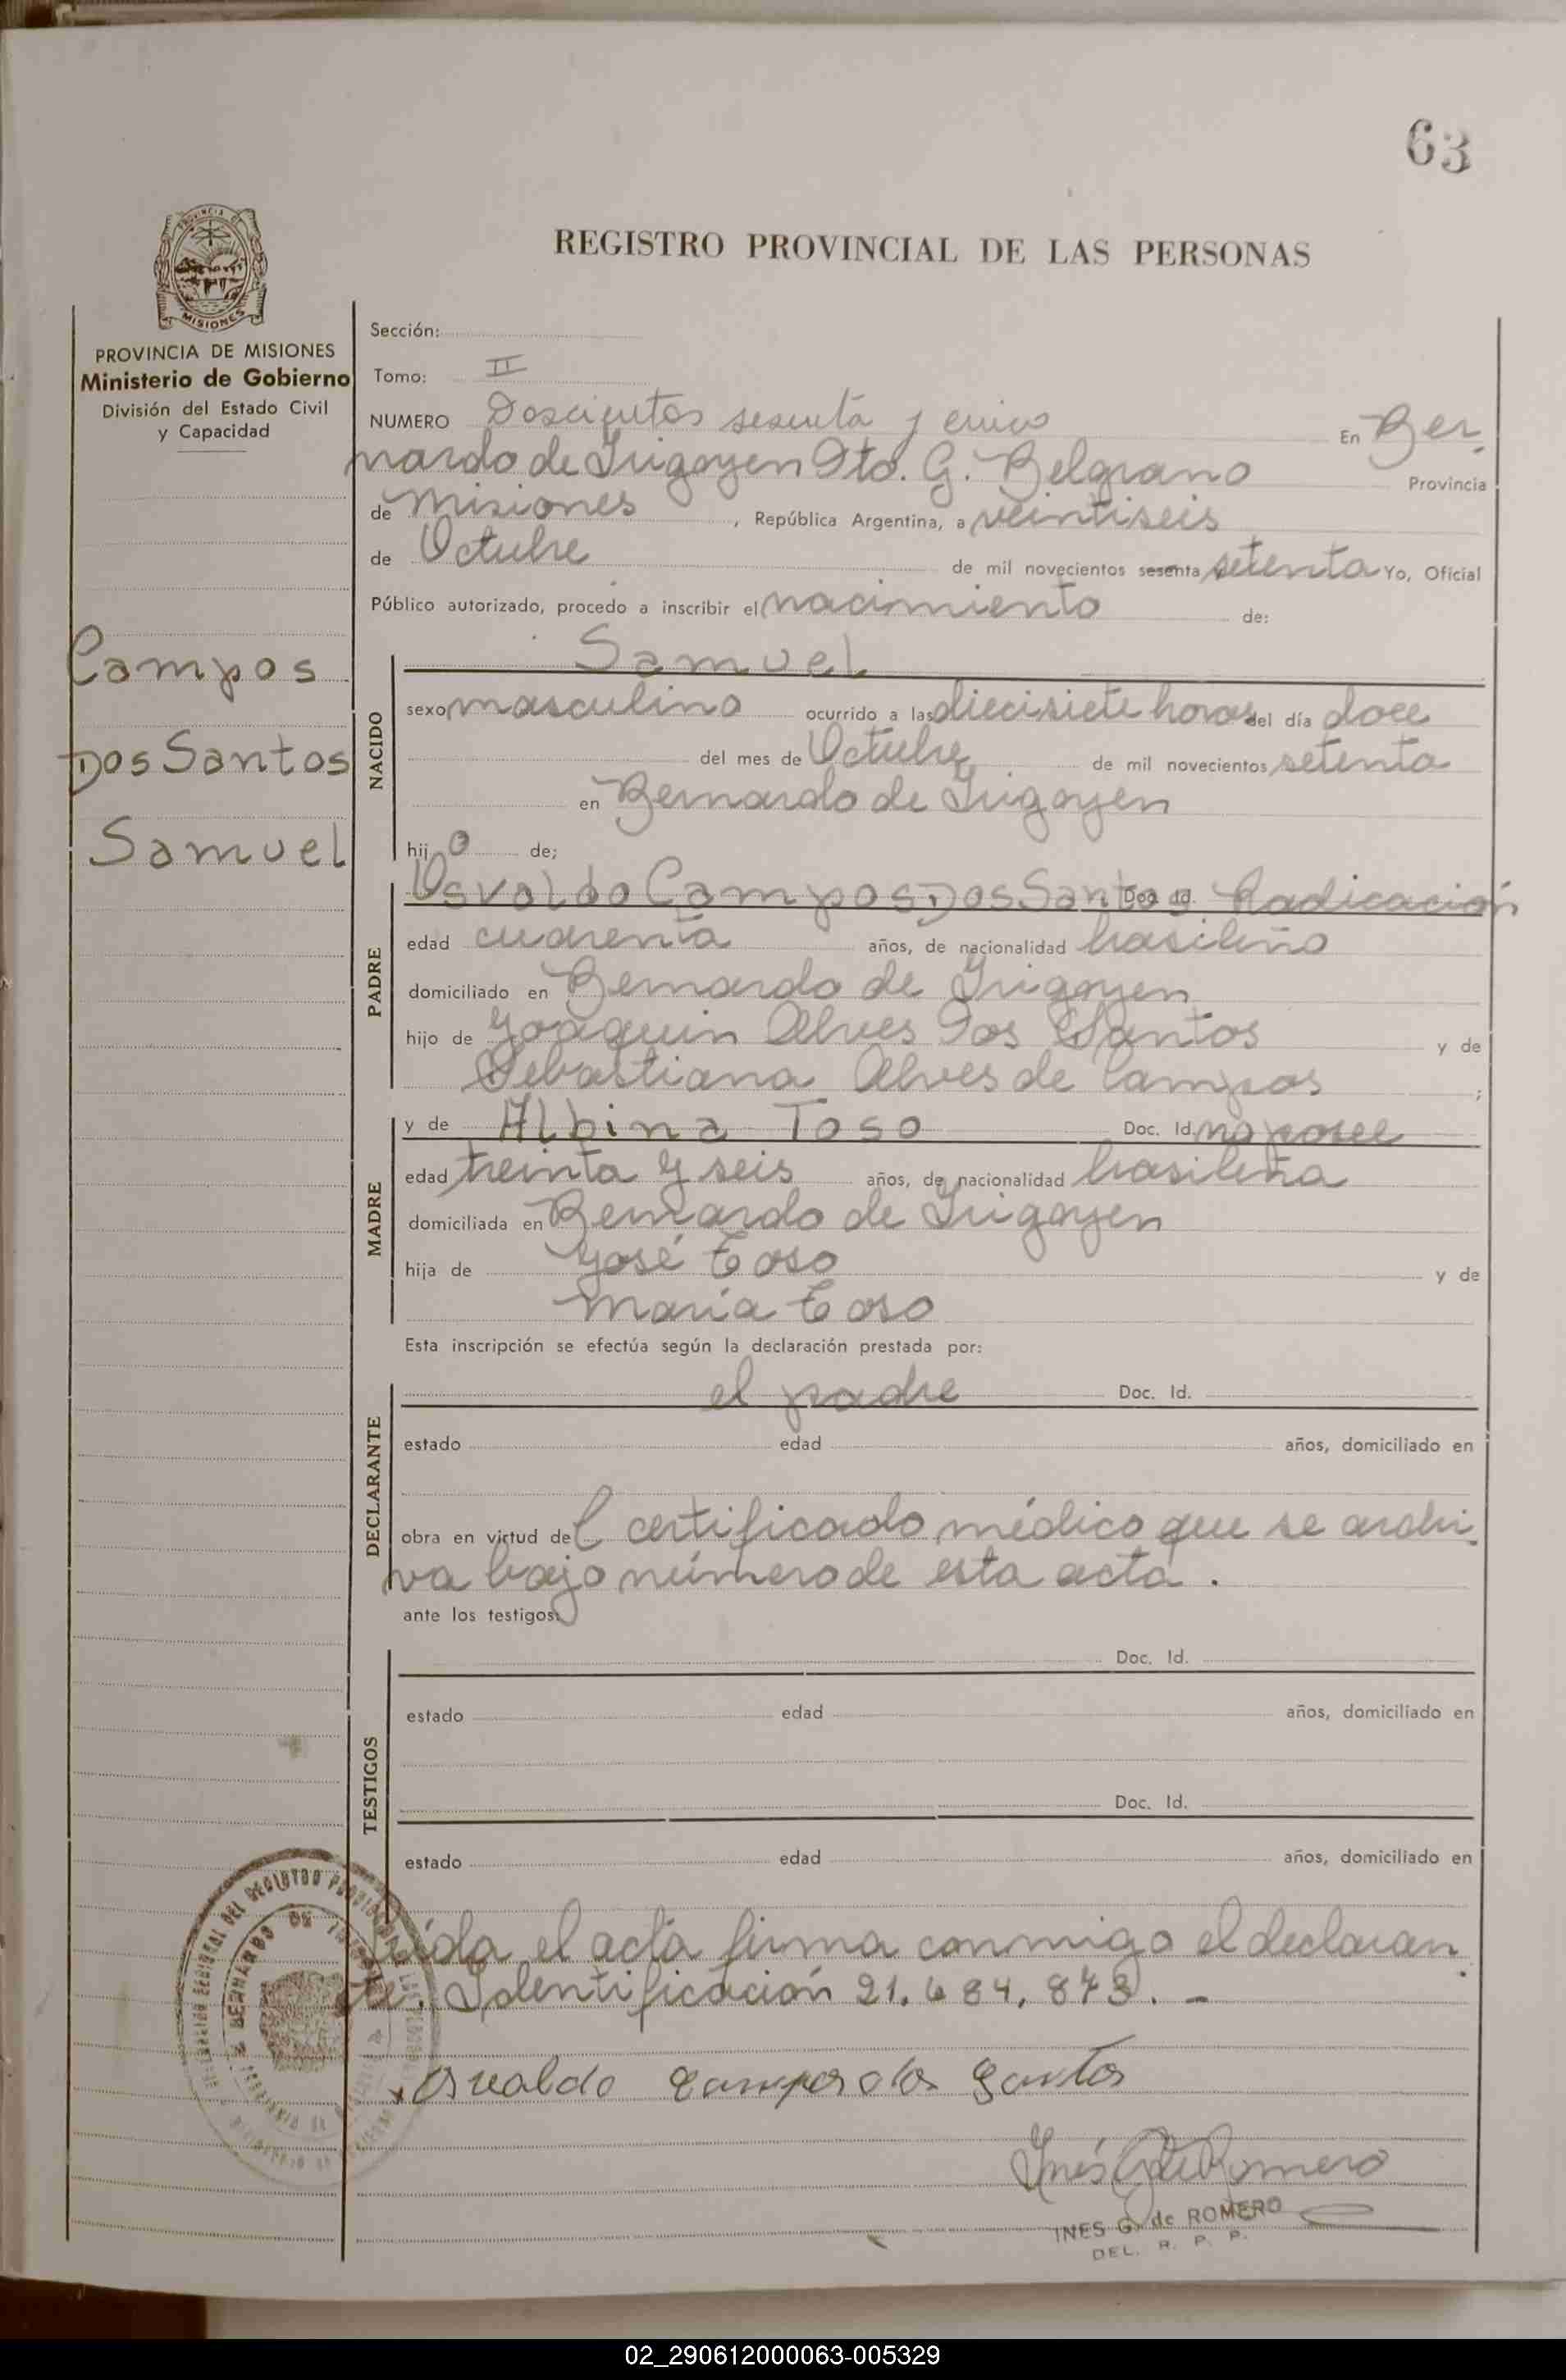 63
REGISTRO PROVINCIAL DE LAS PERSONAS
PROVINCIA DE MISIONES
Ministerio de Gobierno
División del Estado Civil
y Capacidad
Campos
Dos Santos
Samuel
Sección:
Tomo: II
NUMERO Doscientos sesenta y cinco En Ber
nardo de Irigoyen Dto. G. Belgrano Provincia
de Misiones, República Argentina, a veintiseis
de Octubre de mil novecientos sesenta setenta Yo, Oficial
Público autorizado, procedo a inscribir el nacimiento de:
NACIDO
Samuel
sexo masculino ocurrido a las diecisiete horas del día doce
del mes de Octubre de mil novecientos setenta
en Bernardo de Irigoyen
hijo de;
PADRE
Osvaldo Campos Dos Santos Doc. Id. Radicación
edad cuarenta años, de nacionalidad brasileño
domiciliado en Bernardo de Irigoyen
hijo de Joaquin Alves Dos Santos y de
Sebastiana Alves de Campos ;
MADRE
y de Albina Toso Doc. Id. no posee
edad treinta y seis años, de nacionalidad brasileña
domiciliada en Bernardo de Irigoyen
hija de José Toso y de
María Toso
Esta inscripción se efectúa según la declaración prestada por:
DECLARANTE
el padre Doc. Id.
estado edad años, domiciliado en
obra en virtud del certificado médico que se archi
va bajo número de esta acta.
ante los testigos:
TESTIGOS
Doc. Id.
estado edad años, domiciliado en
Doc. Id.
estado edad años, domiciliado en
Leída el acta firma conmigo el declaran
te. Identificación 21.684.873. -
x Osvaldo Campos dos Santos
Inés G. de Romero
INES G. de ROMERO
DEL. R. P. P.
02_290612000063-005329